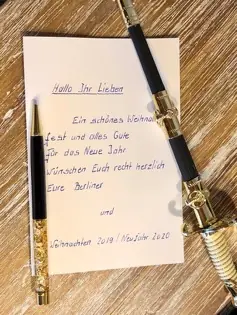 Hallo Ihr Lieben
Ein schönes Weihnac
fest und alles Gute
für das Neue Jahr
wünschen Euch recht herzlich
Eure Berliner
und
Weihnachten 2019 / Neujahr 2020